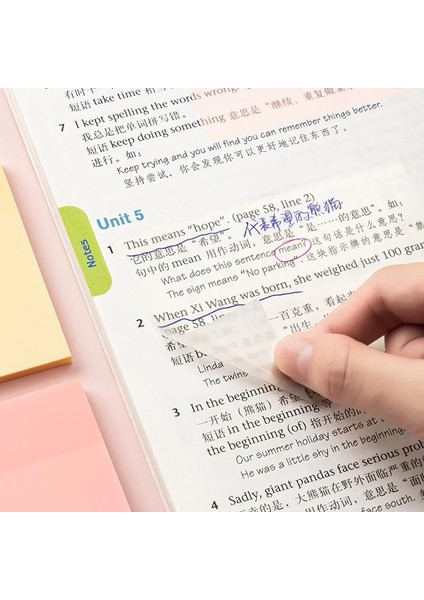 有时
短语 take time 和
7 I kept spelling the words wrong
我总是把单词拼写错。
短语 keep doing something 意思是“继续、重复做某
进行。如：
Keep trying and you will find you can remember things better.
坚持尝试，你会发现你可以更好地记住东西了。
Unit 5
Notes
1 This means “hope”. (page 58, line 2)
代表希望的熊猫
它的意思是“希望”。
句中的 mean 用作动词，意思是“是……的意思”。如：
What does this sentence mean? 这句话是什么意思？
The sign means “No parking”. 这块指示牌的意思是“禁
2 When Xi Wang was born, she weighed just 100 gram
page 58, lin
一百克重，看起来
希
“出生
短语 b
Linda
The twins
3 In the beginning
一开始（熊猫）希望
短语 in the beginning
the beginning (of) 指开始的
Our summer holiday starts at
He was a little shy in the beginning.
4 Sadly, giant pandas face serious prob
的是，大熊猫在野外面临严重的
用作动词，意思是“面
face south.